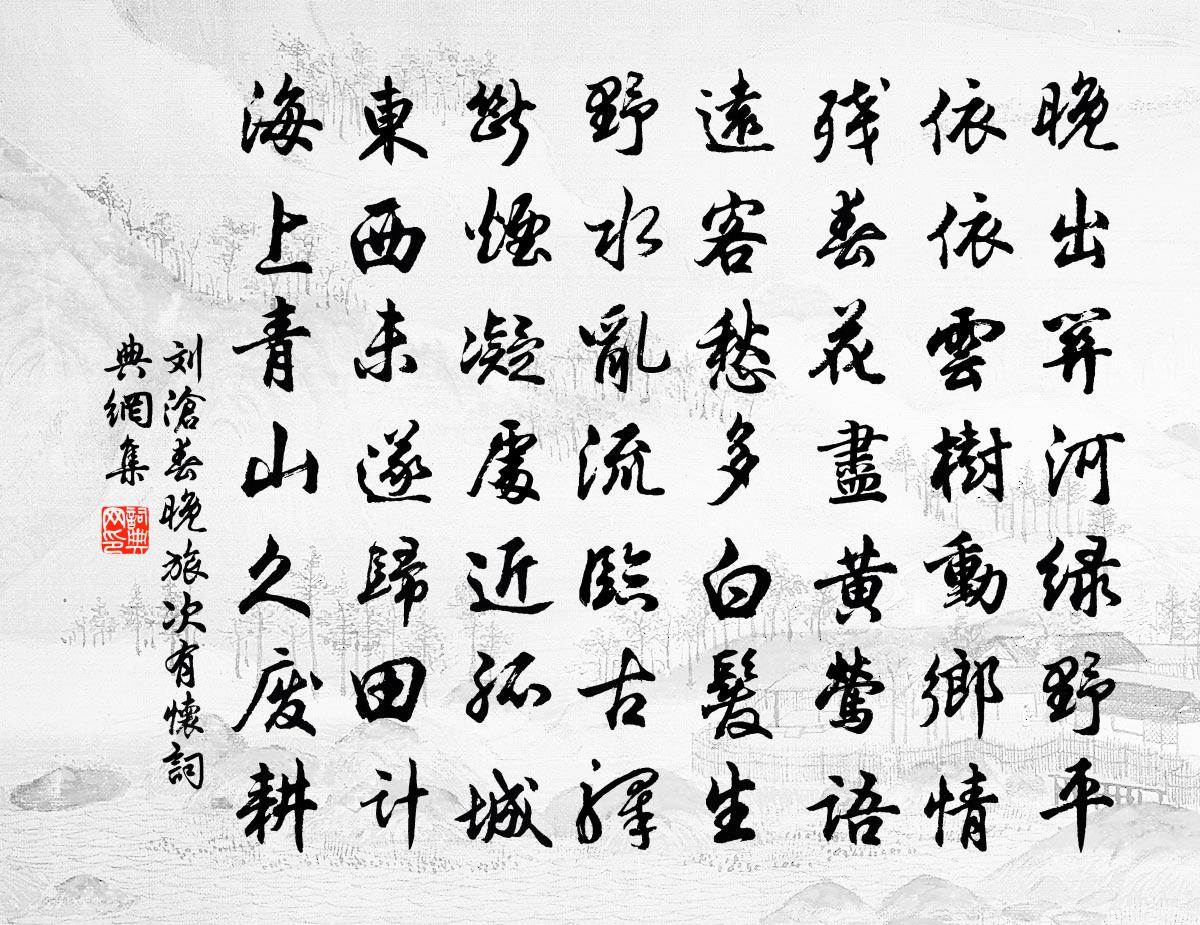 晚出關河綠野平
依依雲樹動鄉情
殘春花盡黃鶯語
遠客愁多白髮生
野水亂流臨古驛
斷煙凝處近孤城
東西未遂歸田計
海上青山久廢耕
刘滄春晚旅次有懷詞
典網集
詞典
网印